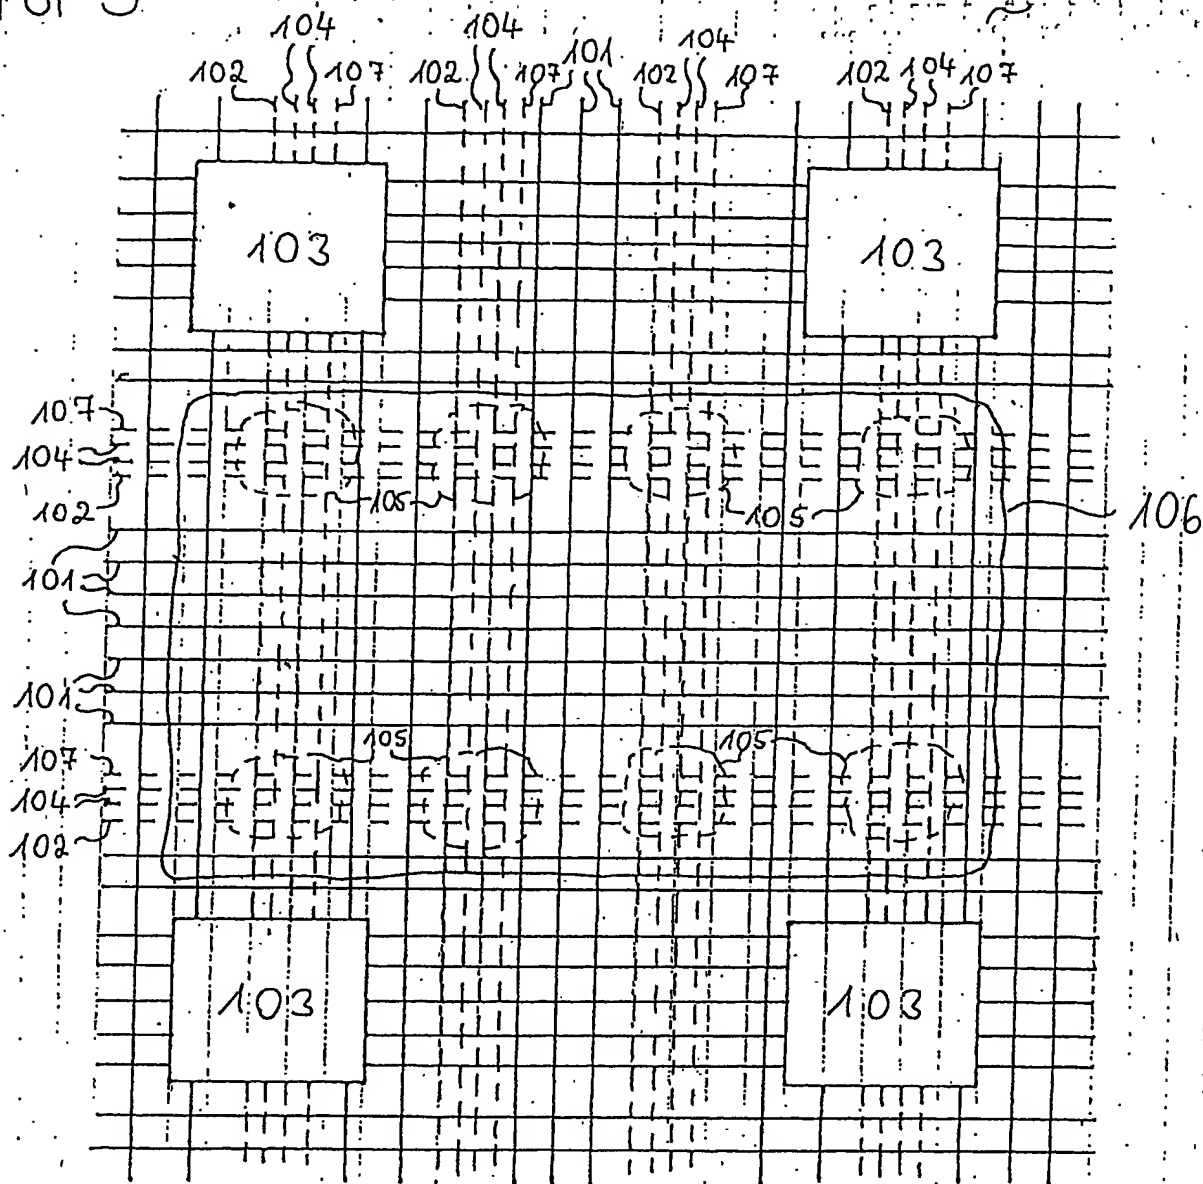 104 104 104
101
102 107 102 107 102 107 102 104 107
103 103
107
104
102 105 105 106
101
101
105 105
107
104
102
103 103